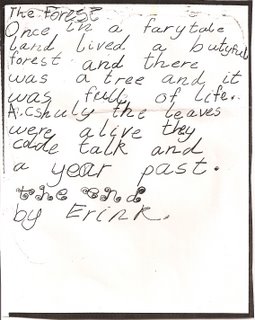 The Forest
Once in a farytale
Land lived a butyful
forest and there
was a tree and it
was full of life.
Acshuly the leaves
were alive they
code talk and
a year past.
the end
by Erink.